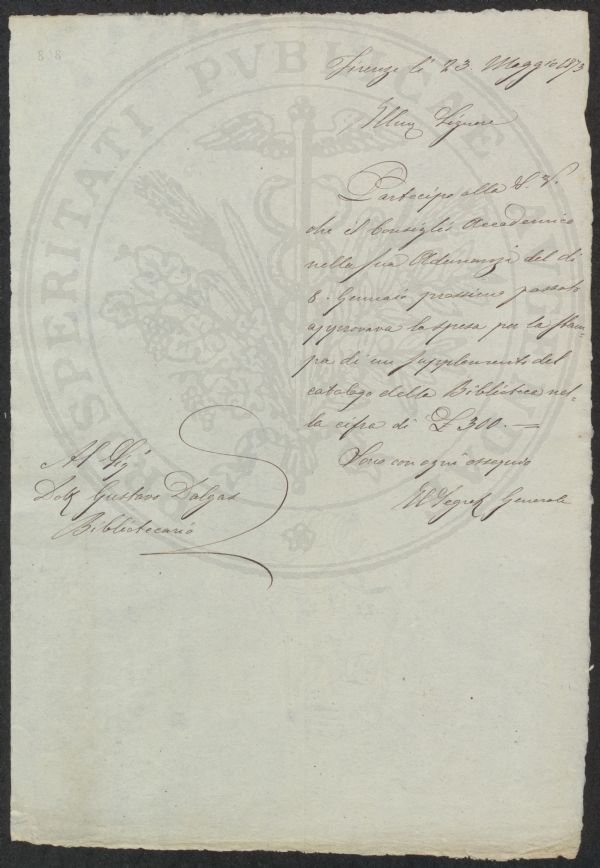 Firenze li 23. Maggio 1873
Illmo Signore
Partecipo alla S. V.
che il Consiglio Accademico
nella sua Adunanza del di
8. Gennaio prossimo passato
approvava la spesa per la stam-
pa di un supplemento del
catalogo della Biblioteca nel-
la cifra di £ 300. —
Sono con ogni ossequio
Il Segret Generale
Al Sigr
Dott Gustavo Dalgas
Bibliotecario
PROSPERITATI PVBLICAE AVGENDAE